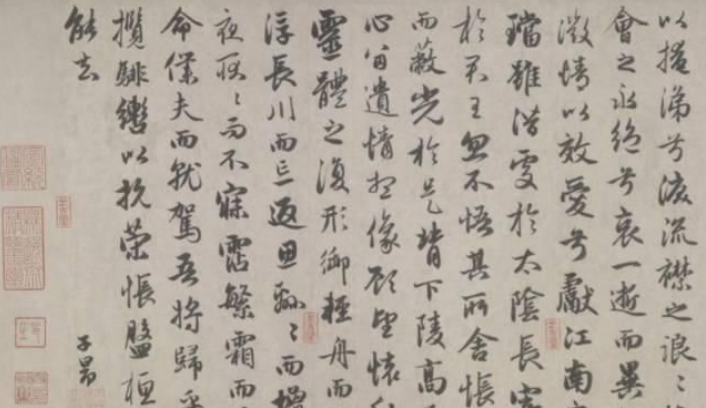 以掩涕兮淚流襟之浪〻
會之永絕兮哀一逝而異
微情以效愛兮獻江南
璫雖潛處於太陰長寄
於君王忽不悟其所舍悵
而蔽光於是背下陵高
心留遺情想像顧望懷
靈體之復形御輕舟而
浮長川而忘返思綿〻而增
夜耿〻而不寐霑繁霜而
命僕夫而就駕吾將歸
攬騑轡以抗策悵盤桓
能去
子昂